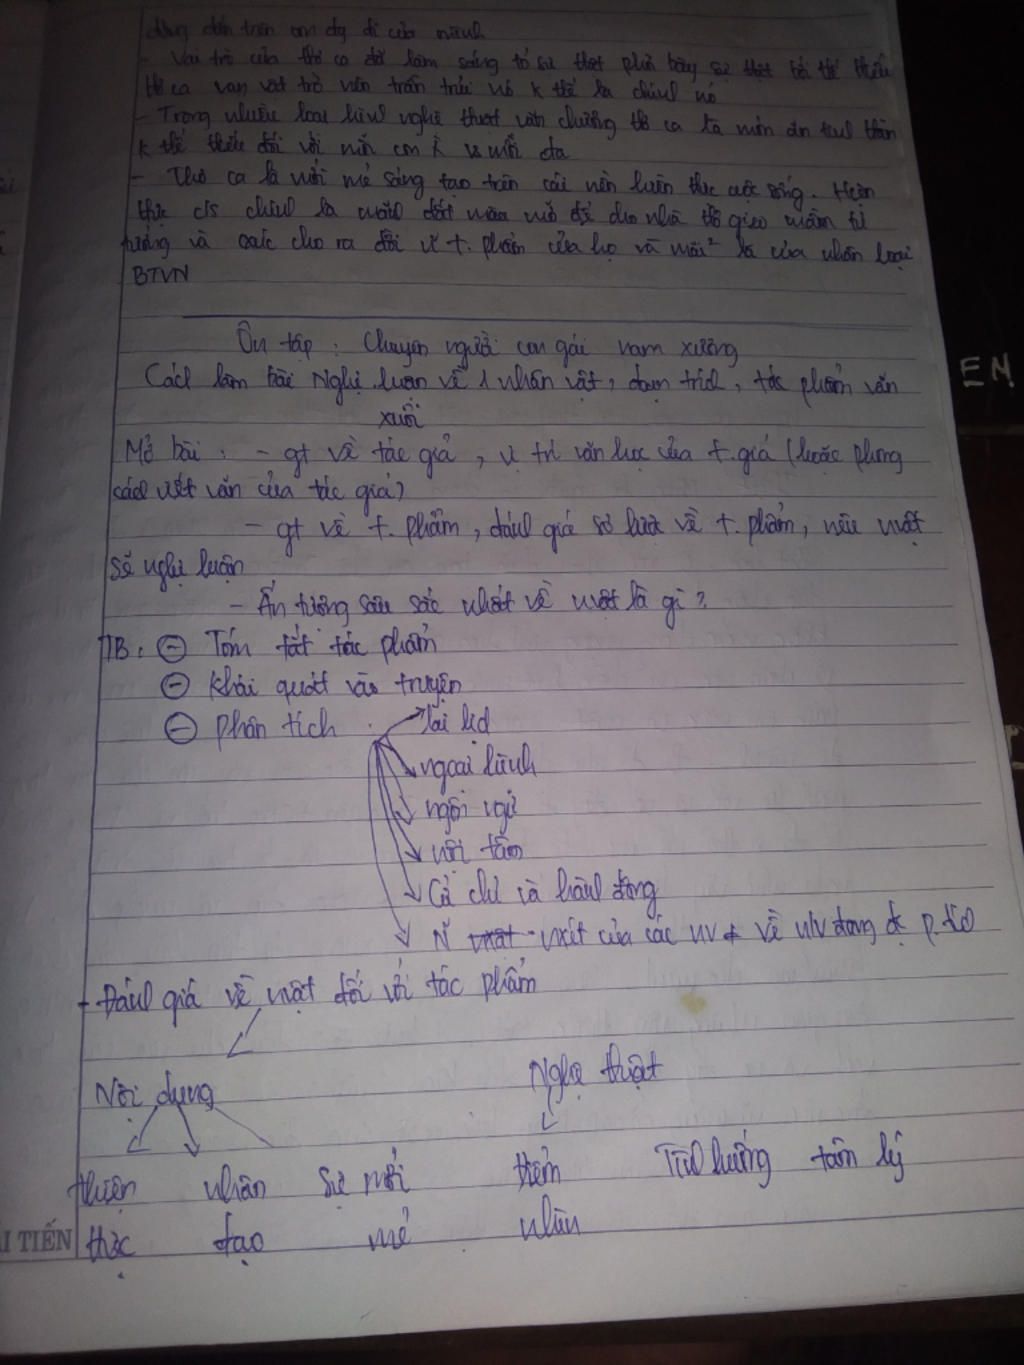 đúng đắn trên con đg đi của mình
- Vai trò của thơ ca đời làm sáng tỏ sự thật phơi bày sự thật bởi thế thiếu
thơ ca vạn vật trở nên trần trụi nó k thể là chính nó
- Trong nhiều loại hình nghệ thuật văn chương thơ ca là món ăn tinh thần
k thể thiếu đối với mỗi con
- Thơ ca là mới mẻ sáng tạo trên cái nền hiện thực cuộc sống. Hiện
thực c/s chính là mảnh đất màu mỡ để cho nhà thơ gieo mầm tư
tưởng và cho ra đời t. phẩm của họ và mãi² là của nhân loại
BTVN
Ôn tập: Chuyện người con gái nam xương
Cách làm bài Nghị luận về 1 nhân vật, đoạn trích, tác phẩm văn
xuôi
Mở bài: - gt về tác giả, vị trí văn học của t.giả (hoặc phong
cách viết văn của tác giả)
- gt về t. phẩm, đánh giá sơ lược về t. phẩm, nêu nvật
sẽ nghị luận
- Ấn tượng sâu sắc nhất về nvật là gì?
TB: - Tóm tắt tác phẩm
- Khái quát vào truyện
- Phân tích: lai lịch
ngoại hình
ngôn ngữ
nội tâm
Cử chỉ và hành động
N nxét của các NV ≠ về n/v đang đc p.tích
- Đánh giá về nvật đối với tác phẩm
Nội dung Nghệ thuật
hiện nhân sự mới điểm Tình huống tâm lý
thực đạo mẻ nhìn
ẢI TIẾN
EM